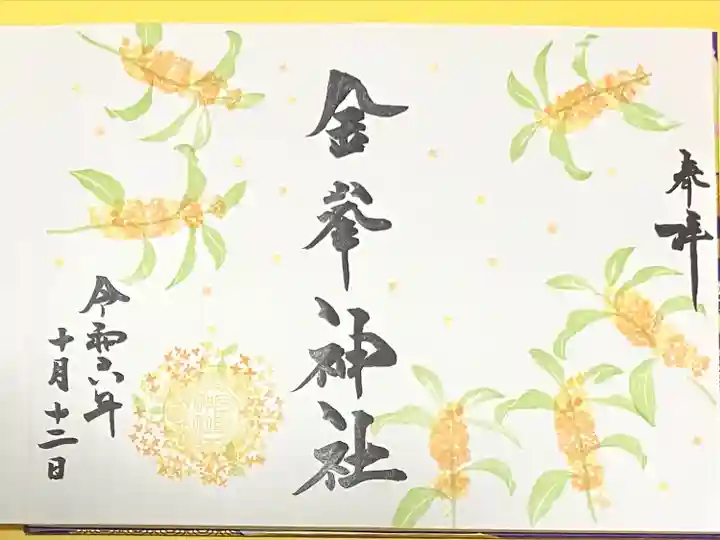 奉拝
金峯神社
令和六年
十月十二日